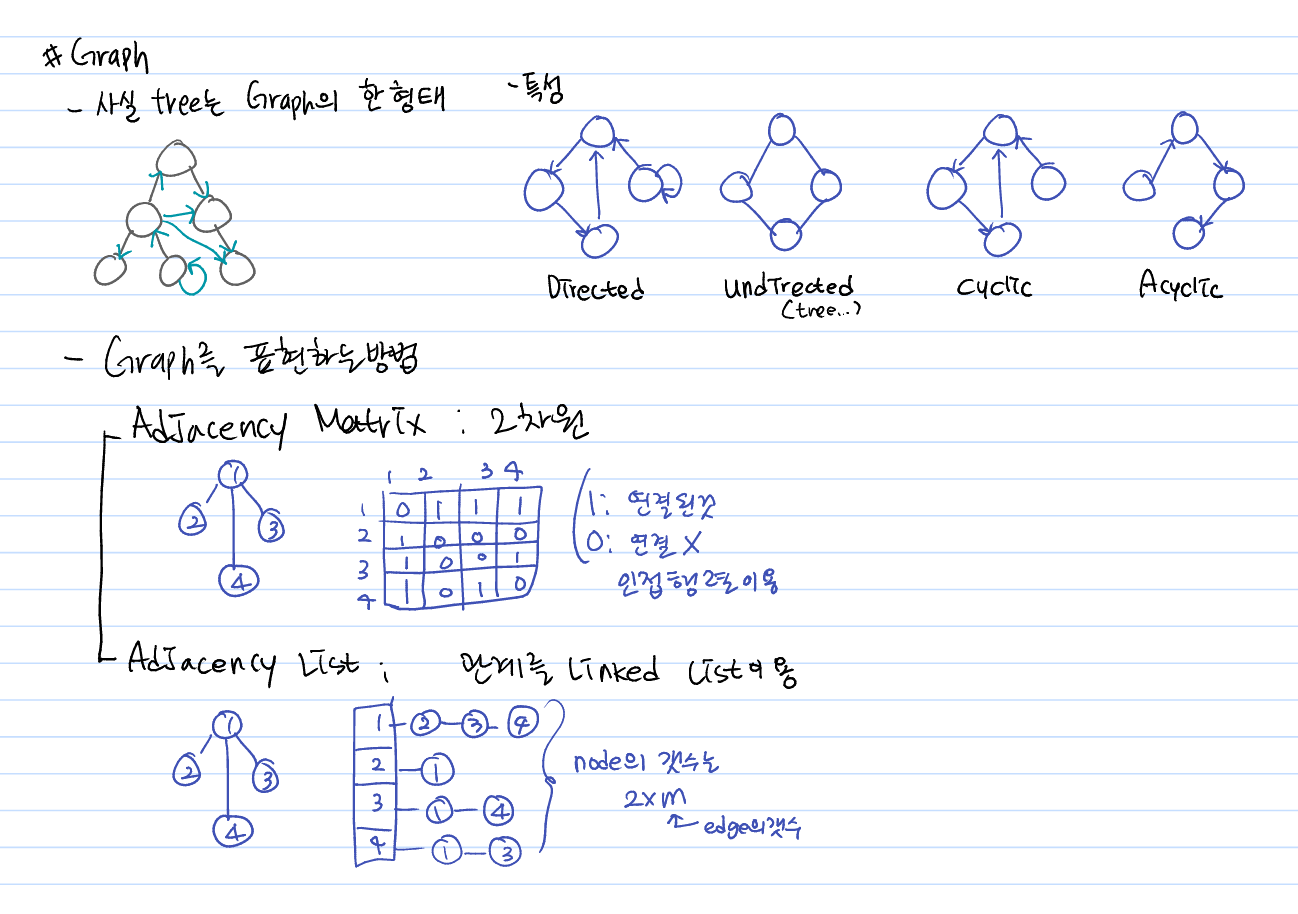 # Graph
- 사실 tree는 Graph의 한 형태
- 특성
Directed
Undirected
(tree...)
Cyclic
Acyclic
- Graph를 표현하는방법
Adjacency Matrix : 2차원
1
2
3
4
1 2 3 4
1 0 1 1 1
2 1 0 0 0
3 1 0 0 1
4 1 0 1 0
1: 연결된것
0: 연결 X
인접행렬이용
Adjacency List ; 관계를 Linked List이용
1
2
3
4
1 2 3 4
2 1
3 1 4
4 1 3
node의 갯수는
2×m
edge의갯수